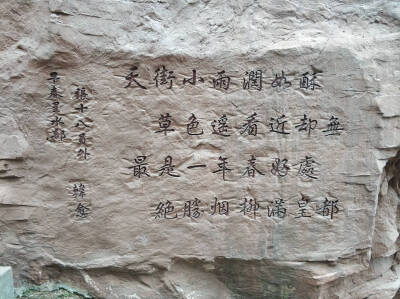 早春呈水部
張十八員外
韓愈
天街小雨潤如酥
草色遙看近却無
最是一年春好處
絶勝烟柳滿皇都